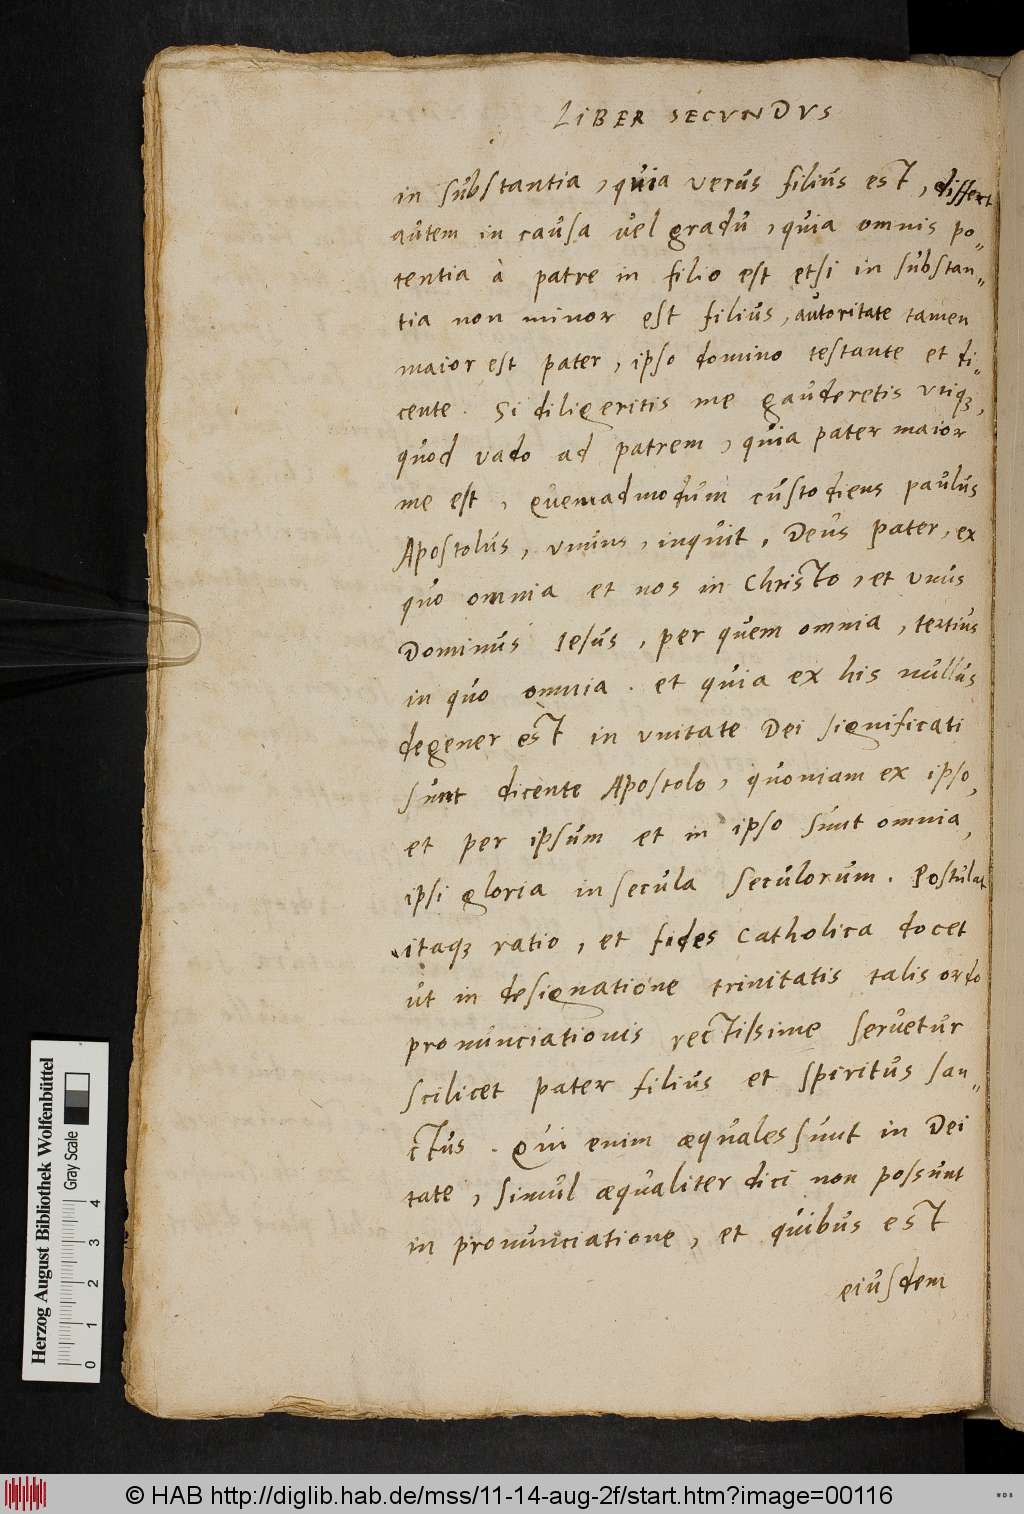 LIBER SECVNDVS
in substantia, quia verus filius est, differt
autem in causa vel gradu, quia omnis po=
tentia à patre in filio est etsi in substan=
tia non minor est filius, autoritate tamen
maior est pater, ipso domino testante et di=
cente. Si diligeritis me gauderetis vtiq;,
quod vado ad patrem, quia pater maior
me est, quemadmodum custodiens paulus
Apostolus, vnus, inquit, Deus pater, ex
quo omnia et nos in Christo, et vnus
Dominus Iesus, per quem omnia, tertius
in quo omnia. et quia ex his nullus
degener est in vnitate Dei significati
sunt dicente Apostolo, quoniam ex ipso,
et per ipsum et in ipso sunt omnia,
ipsi gloria in secula seculorum. Postulat
itaq; ratio, et fides catholica docet
ut in designatione trinitatis talis ordo
pronunciationis rectissime seruetur
scilicet pater filius et spiritus san=
ctus. Qui enim æquales sunt in Dei
tate, simul æqualiter dici non possunt
in pronunciatione, et quibus est
eiusdem
Herzog August Bibliothek Wolfenbüttel
Gray Scale
0 1 2 3 4
© HAB http://diglib.hab.de/mss/11-14-aug-2f/start.htm?image=00116